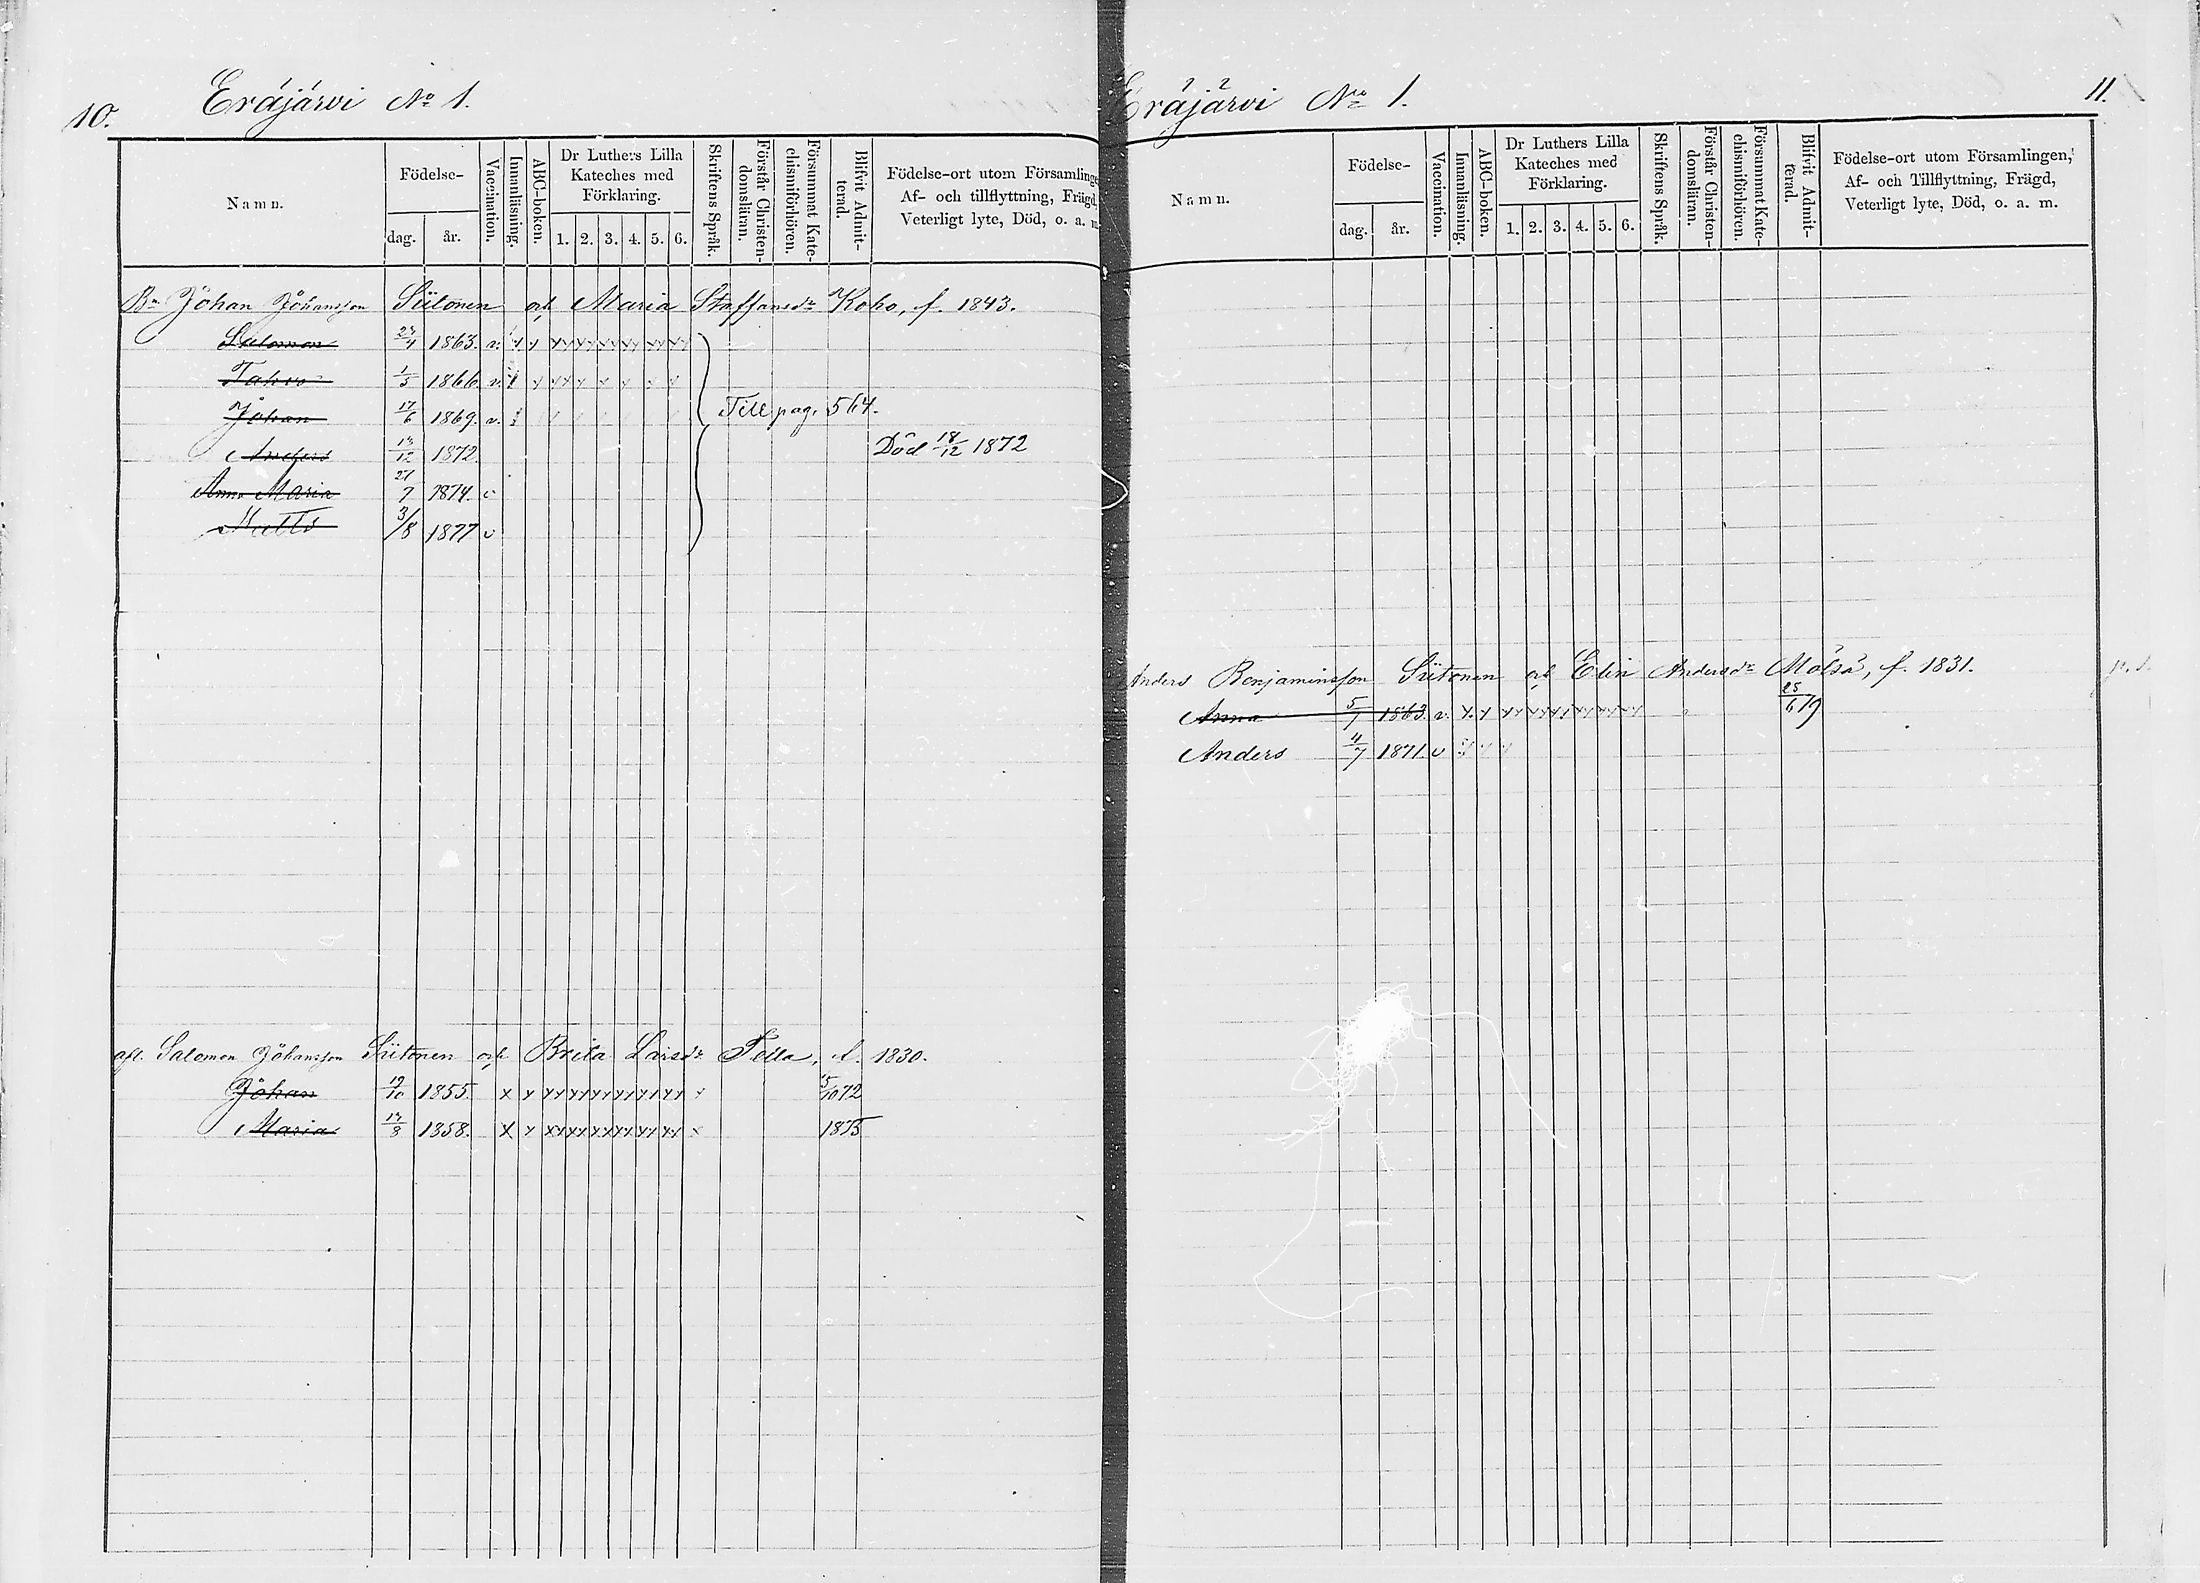 10.
Eräjärvi No 1.
Namn.
Födelse-
dag.
år.
Vaccination.
Innanläsning.
ABC-boken.
Dr Luthers Lilla
Kateches med
Förklaring.
1. 2. 3. 4. 5. 6.
Skriftens Språk.
Förstår Christen-
domsläran.
Försummat Kate-
chismiförhören.
Blifvit Admit-
terad.
Födelse-ort utom Församlinge
Af- och tillflyttning, Frägd,
Veterligt lyte, Död, o. a. m
Bn Johan Johansson Siitonen och Maria Staffansdr Koho, f. 1843.
Salomon 1863. v. x x x x x x x x
Tahvo 1/5 1866. v. x x x x x x x
Johan 17/6 1869. v. Till pag. 564.
Anders 1872. Död 18/12 1872
Anna Maria 21/7 1874. v
Matts 3/8 1877 v
afl. Salomon Johansson Siitonen och Brita Larsdr Tella, f. 1830.
Johan 19/10 1855. x x x x x x x x x 15/10 72
Maria 1858. x x x x x x x x x 1875
Eräjärvi No 1.
11.
Namn.
Födelse-
dag.
år.
Vaccination.
Innanläsning.
ABC-boken.
Dr Luthers Lilla
Kateches med
Förklaring.
1. 2. 3. 4. 5. 6.
Skriftens Språk.
Förstår Christen-
domsläran.
Försummat Kate-
chismiförhören.
Blifvit Admit-
terad.
Födelse-ort utom Församlingen,
Af- och Tillflyttning, Frägd,
Veterligt lyte, Död, o. a. m.
Anders Benjaminsson Siitonen och Elin Andersdr Mölsä, f. 1831.
Anna 5/1 1863. v. x x x x x x x x 25/6 79
Anders 4/7 1871. v